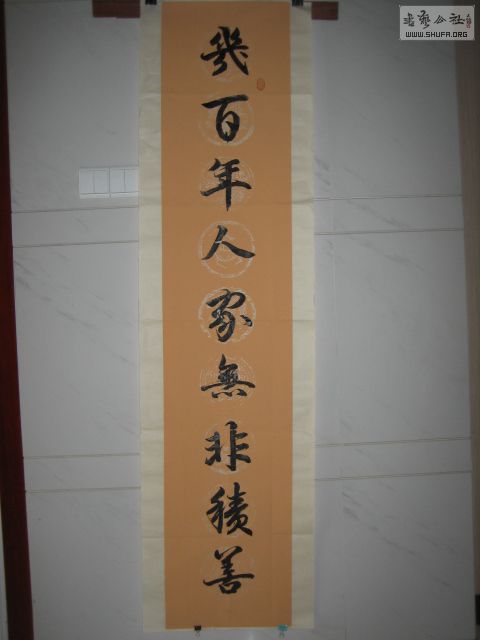 幾百年人家無非積善
书艺公社
WWW.SHUFA.ORG